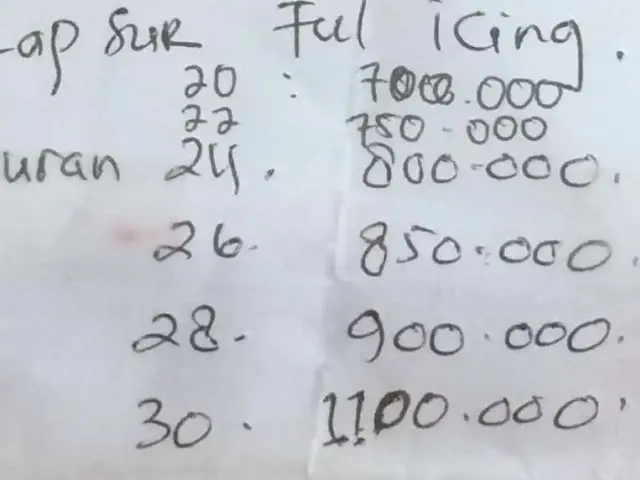 -ap SUR Ful icing.
20 : 700.000
22 750.000
uran 24. 800.000.
26. 850.000.
28. 900.000.
30. 1100.000.